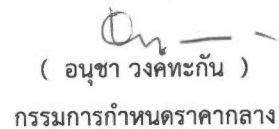 ( อนุชา วงค์ทะกัน )
กรรมการกำหนดราคากลาง